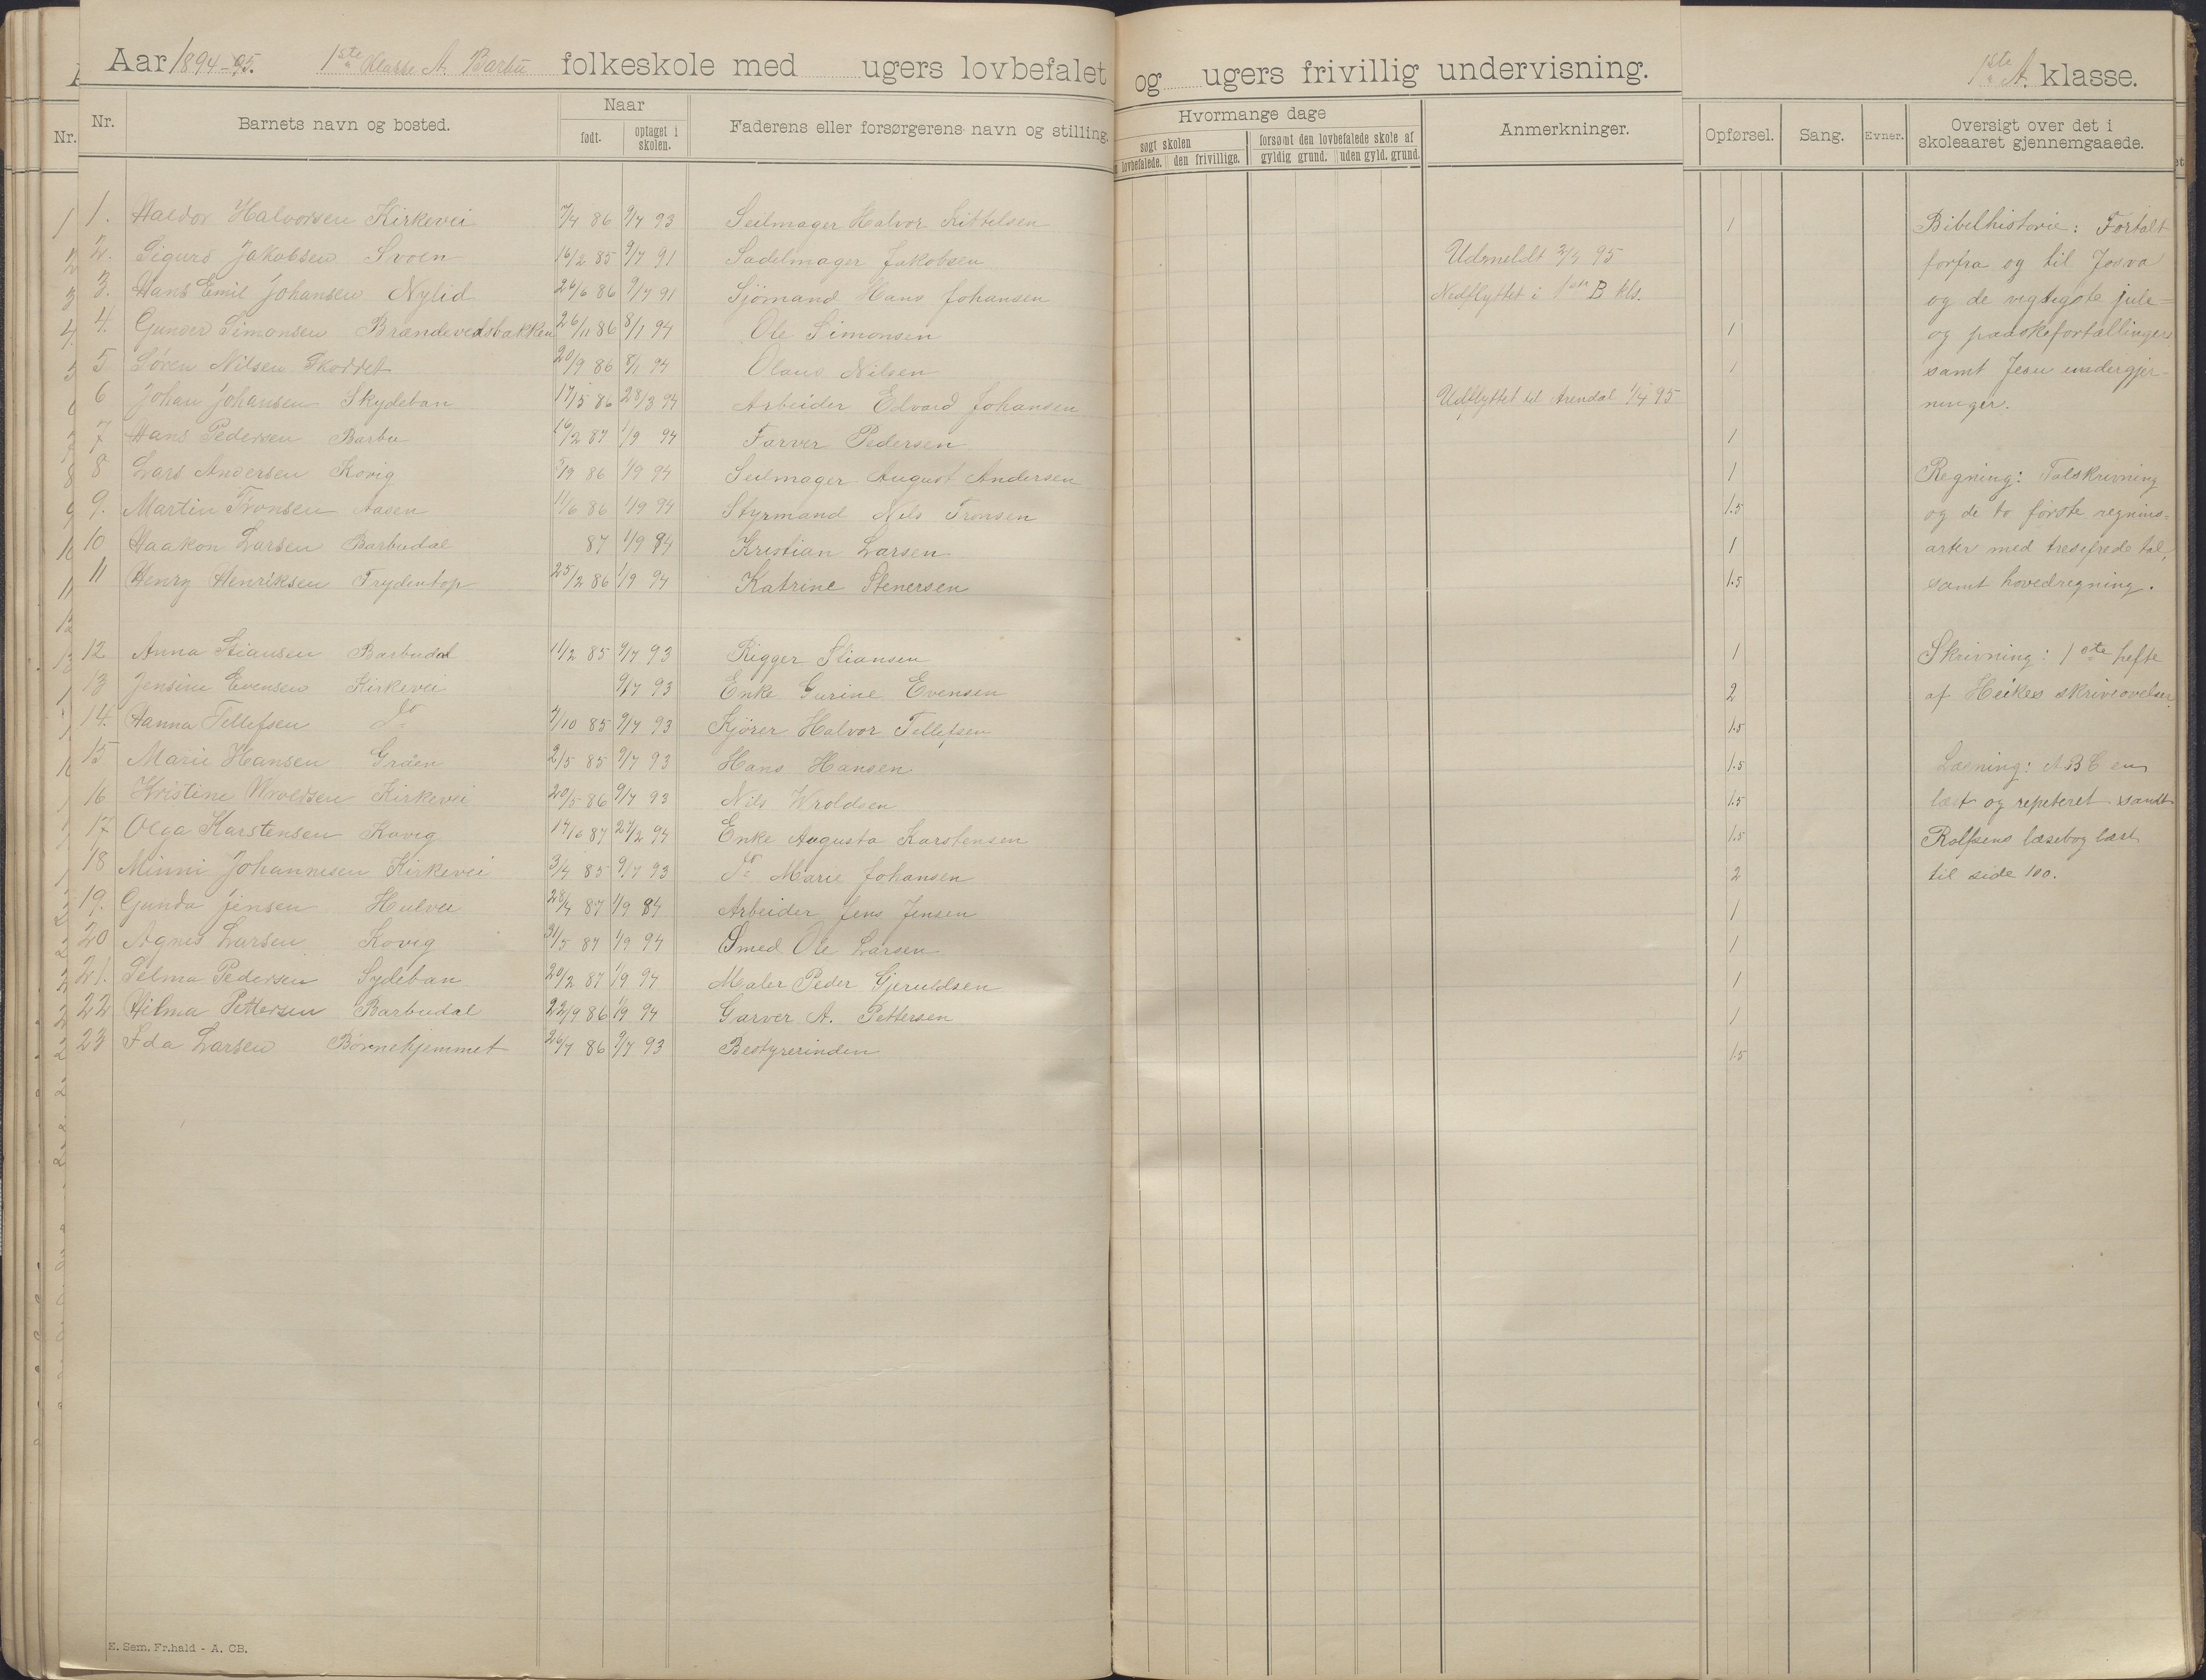 Aar 1894-95. 1ste Klasse A. Barbu folkeskole med ugers lovbefalet og ugers frivillig undervisning. 1ste A. klasse.
Nr. Barnets navn og bosted. Naar født. optaget i skolen. Faderens eller forsørgerens navn og stilling.
Hvormange dage søgt skolen lovbefalede. den frivillige. forsømt den lovbefalede skole af gyldig grund. uden gyld. grund. Anmerkninger.
Opførsel. Sang. Evner. Oversigt over det i skoleaaret gjennemgaaede.
1. Haldor Halvorsen Kirkevei 7/4 86 9/7 93 Seilmager Halvor Kittelsen 1
2. Sigurd Jakobsen Svoen 16/2 85 9/7 91 Sadelmager Jakobsen Udmeldt 2/4 95
3. Hans Emil Johansen Nylid 26/6 86 9/7 91 Sjömand Hans Johansen Nedflyttet i 1ste B kls.
4. Gunder Simonsen Brændevedsbakken 26/11 86 8/1 94 Ole Simonsen 1
5 Søren Nilsen Skoddet 20/9 86 8/1 94 Olaus Nilsen 1
6 Johan Johansen Skydeban 17/5 86 28/3 94 Arbeider Edvard Johansen Udflyttet til Arendal 1/4 95
7 Hans Pedersen Barbu 16/2 87 1/9 94 Farver Pedersen 1
8 Lars Andersen Kovig 5/9 86 1/9 94 Seilmager August Andersen 1
9. Martin Tronsen Aasen 11/6 86 1/9 94 Styrmand Nils Tronsen 1.5
10 Haakon Larsen Barbudal 87 1/9 94 Kristian Larsen 1
11 Henry Henriksen Frydentop 25/2 86 1/9 94 Katrine Stenersen 1.5
12 Anna Stiansen Barbudal 11/2 85 9/7 93 Rigger Stiansen 1
13 Jensine Evensen Kirkevei 9/7 93 Enke Gurine Evensen 2
14. Hanna Tellefsen do 4/10 85 9/7 93 Kjører Halvor Tellefsen 1.5
15 Marie Hansen Gråen 2/5 85 9/7 93 Hans Hansen 1.5
16 Kristine Wroldsen Kirkevei 20/5 86 9/7 93 Nils Wroldsen 1.5
17 Olga Karstensen Kovig 14/10 87 27/2 94 Enke Augusta Karstensen 1.5
18 Minni Johannesen Kirkevei 3/4 85 9/7 93 do Marie Johansen 2
19. Gunda Jensen Hulvei 28/4 87 1/9 84 Arbeider Jens Jensen 1
20 Agnes Larsen Kovig 31/5 87 1/9 94 Smed Ole Larsen 1
21. Selma Pedersen Sydeban 20/2 87 1/9 94 Maler Peder Gjeruldsen 1
22 Hilma Pettersen Barbudal 22/9 86 1/9 94 Garver A. Pettersen 1
23 Ida Larsen Børnehjemmet 26/7 86 9/7 93 Bestyrerinden 1.5
Bibelhistorie: Fortalt
forfra og til Josva
og de vigtigste jule=
og paaskefortællinger
samt Jesu undergjer-
ninger.
Regning: Talskrivning
og de to første regnings-
arter med tresifrede tal,
samt hovedregning.
Skrivning: 1ste hefte
af Heikes skriveøvelser.
Læsning: ABC en
læst og repeteret samt
Rolfsens læsebog læst
til side 100.
E. Sem, Fr.hald - A. CB.